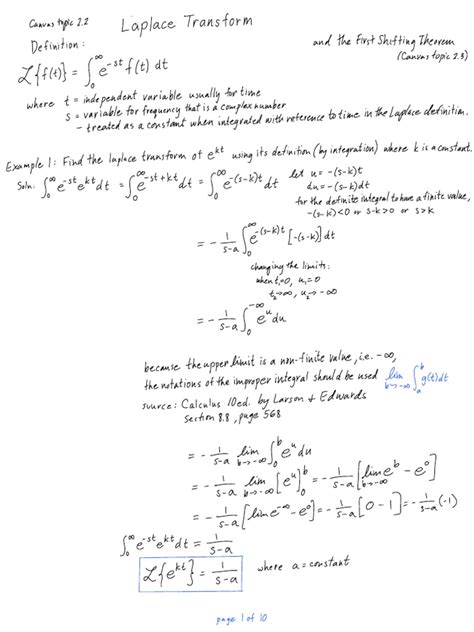 Canvas topic 2.2 Laplace Transform
and the First Shifting Theorem
(Canvas topic 2.3)
Definition:
ℒ{f(t)} = ∫₀^∞ e^(-st) f(t) dt
where t = independent variable usually for time
s = variable for frequency that is a complex number
- treated as a constant when integrated with reference to time in the Laplace definition.
Example 1: Find the laplace transform of e^(kt) using its definition (by integration) where k is a constant.
Soln: ∫₀^∞ e^(-st) e^(kt) dt = ∫₀^∞ e^(-st+kt) dt = ∫₀^∞ e^(-(s-k)t) dt let u = -(s-k)t
du = -(s-k)dt
for the definite integral to have a finite value,
-(s-k)<0 or s-k>0 or s>k
= -1/(s-a) ∫₀^∞ e^(-(s-k)t) [-(s-k)] dt
changing the limits:
when t₁=0, u₁=0
t₂→∞, u₂→ -∞
= -1/(s-a) ∫₀^(-∞) e^u du
because the upper limit is a non-finite value, i.e. -∞,
the notations of the improper integral should be used lim b→-∞ ∫ₐ^b g(t)dt
source: Calculus 10ed. by Larson & Edwards
section 8.8, page 568
= -1/(s-a) lim b→-∞ ∫₀^b e^u du
= -1/(s-a) lim b→-∞ [e^u]₀^b = -1/(s-a) [lim e^b - e^0]
= -1/(s-a) [lim e^(-∞) - e^0] = -1/(s-a) [0-1] = -1/(s-a) (-1)
∫₀^∞ e^(-st) e^(kt) dt = 1/(s-a)
ℒ{e^(kt)} = 1/(s-a) where a = constant
page 1 of 10